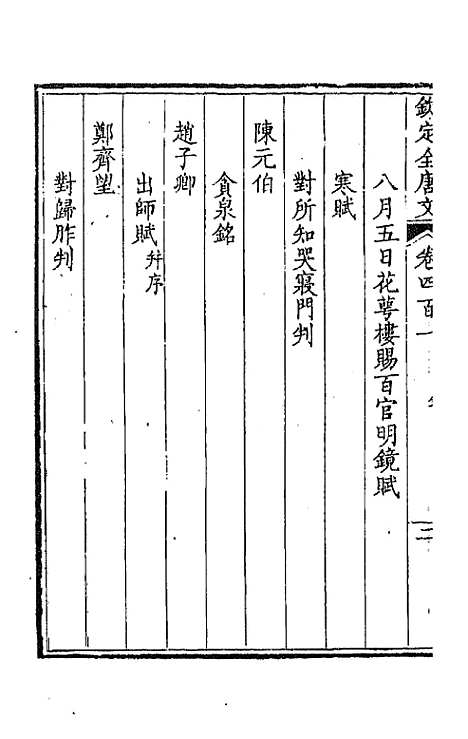 欽定全唐文 卷四百一 二
八月五日花萼樓賜百官明鏡賦
寒賦
對所知哭寢門判
陳元伯
貪泉銘
趙子卿
出師賦并序
鄭齊望
對歸胙判